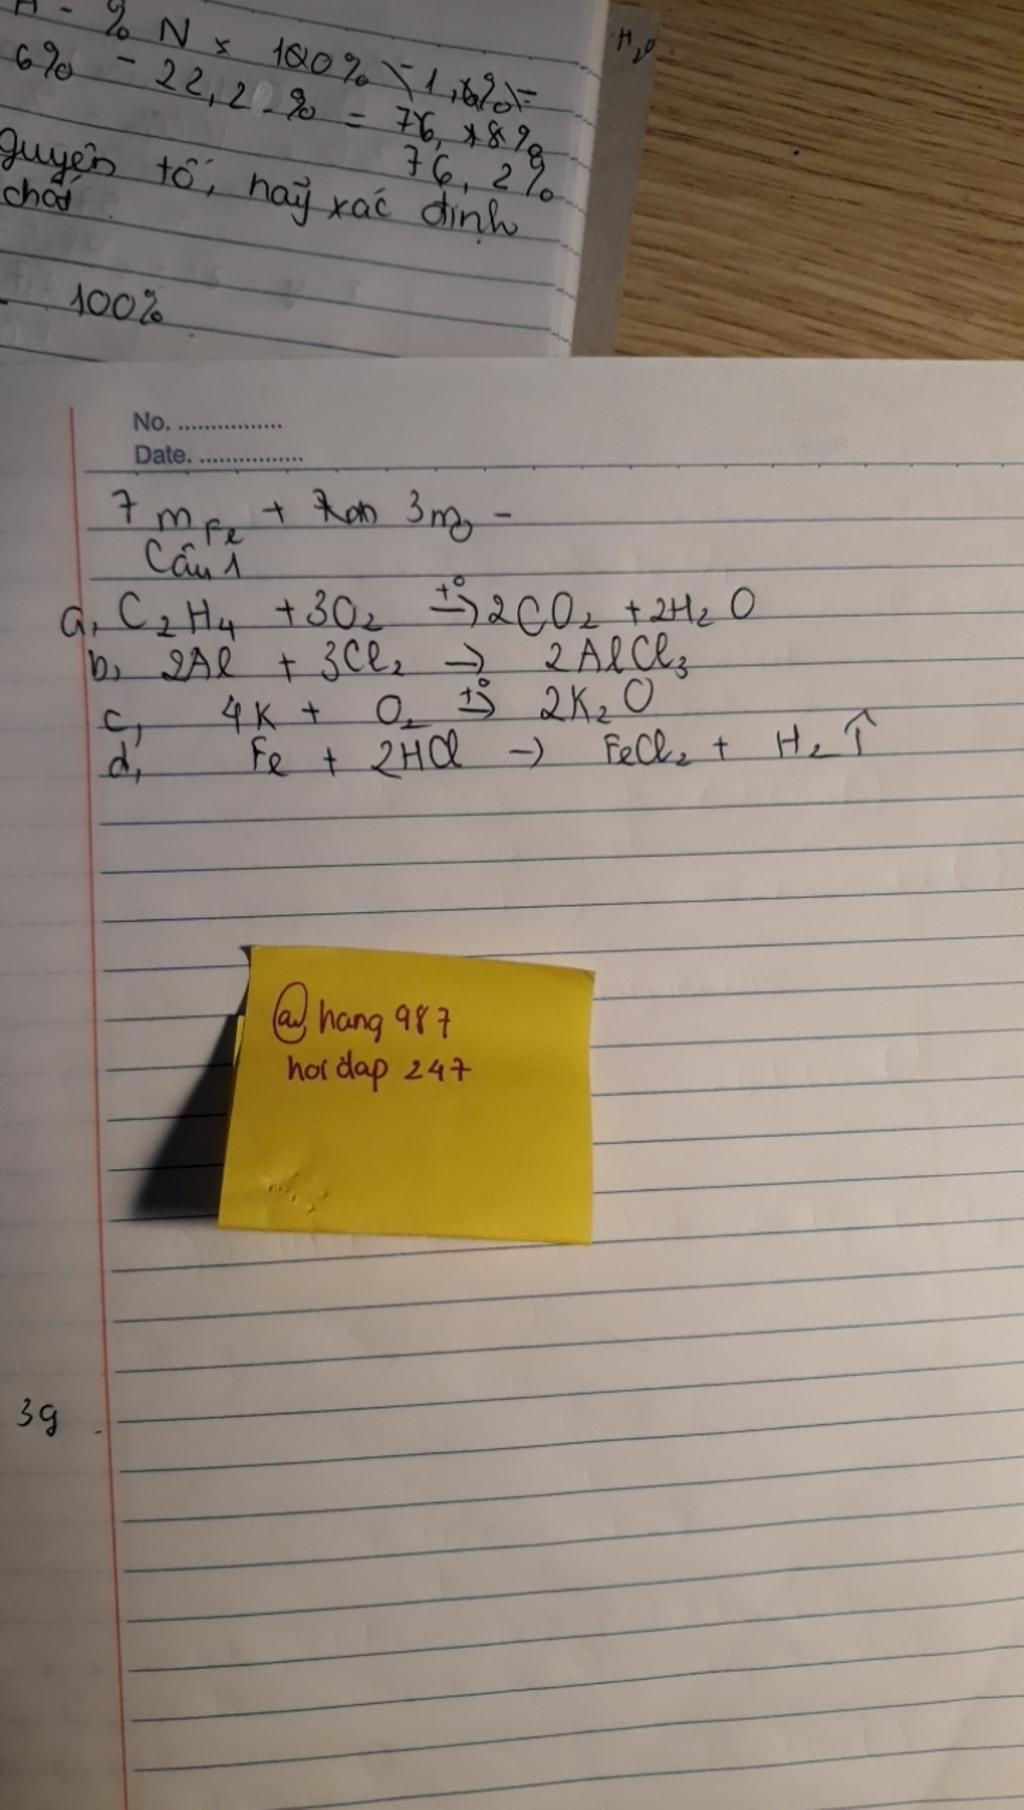 % N × 100% - 1,6% =
6% - 22,2% = 76,8%
76,2%
nguyên tố, hãy xác định
chất
100%
H2O
No. ................
Date. ................
7 mFe + 3m -
Câu 1
a, C2H4 + 3O2 t°→ 2CO2 + 2H2O
b, 2Al + 3Cl2 → 2AlCl3
c, 4K + O2 t°→ 2K2O
d, Fe + 2HCl → FeCl2 + H2 ↑
@hang987
hoidap 247
3g